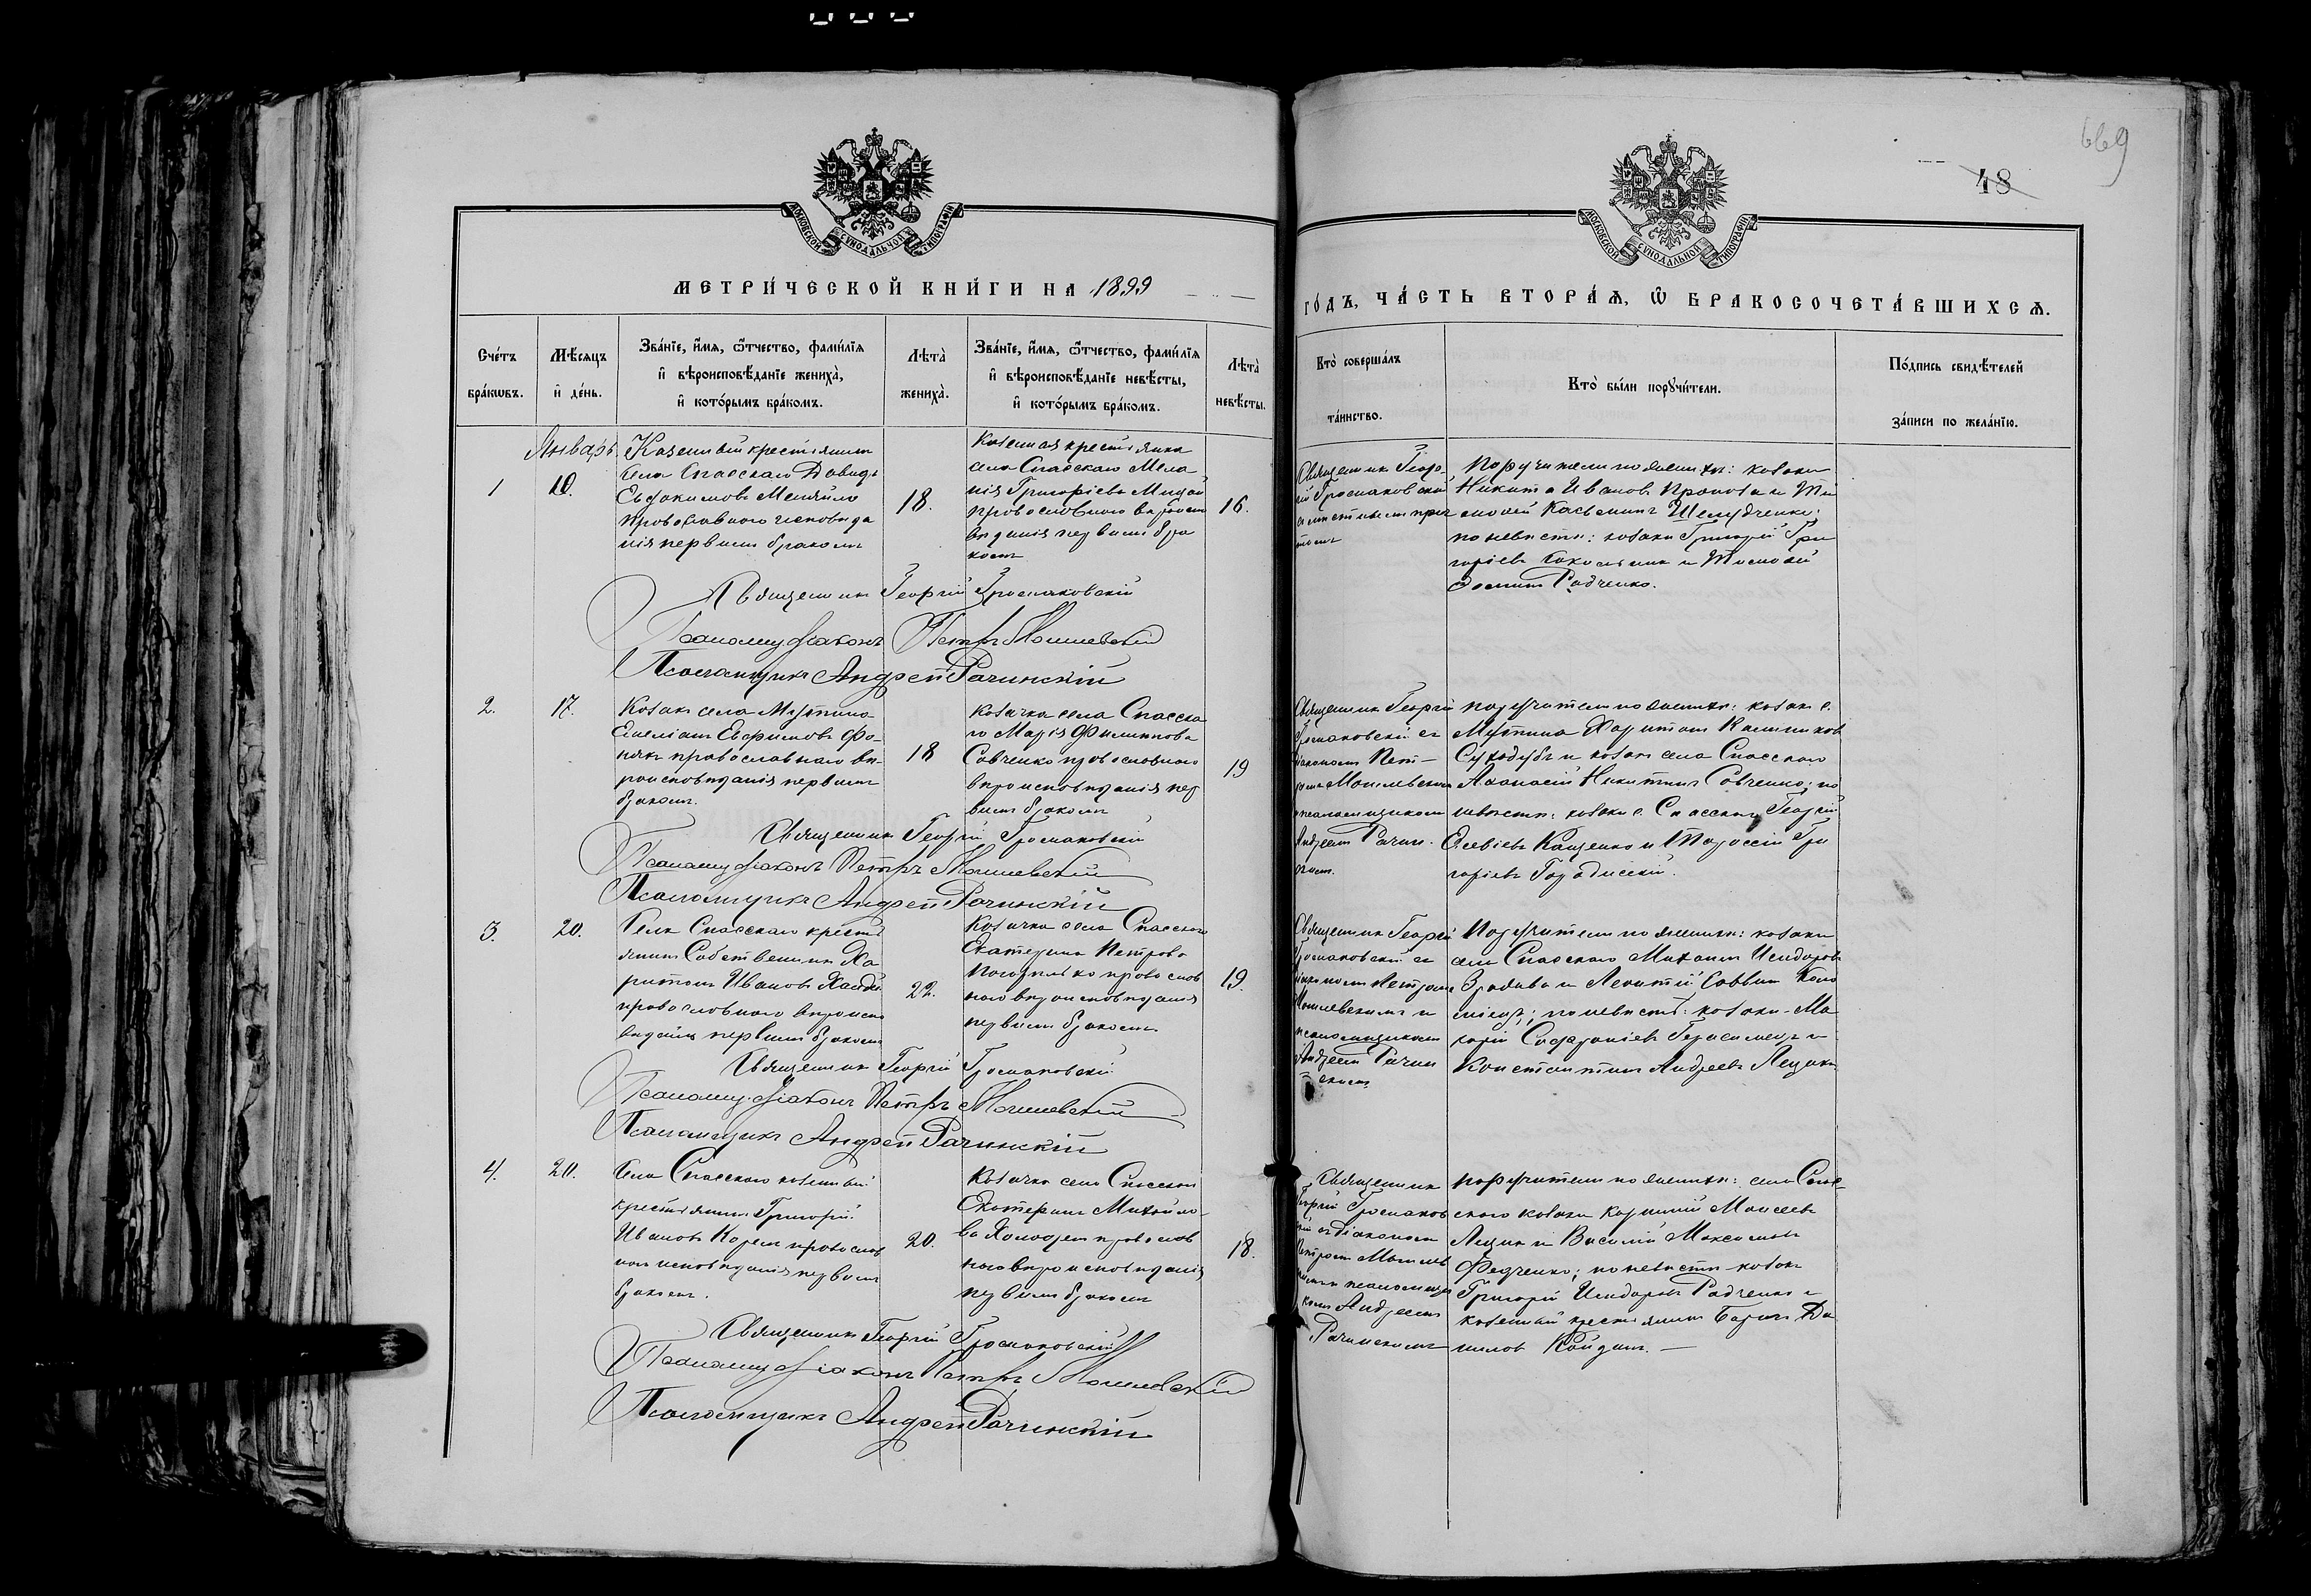 669
48
МОСКОВСКОЙ СѴНОДАЛЬНОЙ ТИПОГРАФІИ
МОСКОВСКОЙ СѴНОДАЛЬНОЙ ТИПОГРАФІИ
МЕТРИ́ЧЕСКОЙ КНИ́ГИ НА 1899
ГО́ДЪ, ЧА́СТЬ ВТОРА́Ѧ, Ѽ БРАКОСОЧЕТА́ВШИХСѦ.
Сче́тъ бра́кѡвъ.
Мѣ́сѧцъ и҆ де́нь.
Зва́нїе, и҆́мѧ, ѻ҆́тчество, фами́лїѧ
и҆ вѣроисповѣ́данїе жениха̀,
и҆ кото́рымъ бра́комъ.
Лѣта̀ жениха̀.
Зва́нїе, и҆́мѧ, ѻ҆́тчество, фами́лїѧ
и҆ вѣроисповѣ́данїе невѣ́сты,
и҆ кото́рымъ бра́комъ.
Лѣта̀ невѣ́сты.
Кто̀ соверша́лъ та́инство.
Кто̀ бы́ли порꙋчи́тели.
По́дпись свидѣ́телей
за́писи по жела́нїю.
1
Январь
10.
Казенный крестьянинъ
села Спасскаго Давидъ
Евдокимовъ
православнаго исповѣда
нія первымъ бракомъ
18.
Козенная крестьянка
села Спасскаго Мела
нія Григоріева
православнаго вѣроиспо
вѣданія первымъ бра
комъ
16.
Священникъ Геор
гій Громаковскій
Поручители по женихѣ: козаки
Никита Ивановъ и Ти
мофей Касьминъ Шелудченко;
по невѣстѣ: козаки Григорій Гри
горіевъ и Тимофей
Радченко.
Священникъ Георгій Громаковскій
Псаломщ. діаконъ Петръ Могилевскій
Псаломщикъ Андрей Рачинскій
2.
17.
Козакъ села Мутина
Емеліанъ Евфимовъ
православнаго вѣ
роисповѣданія первымъ
бракомъ.
18
Козачка села Спасска
го Марія Филиппова
Савченко православнаго
вѣроисповѣданія пер
вымъ бракомъ
19
Священникъ Георгій
Громаковскій съ
діакономъ Пет
ромъ Могилевскимъ
и псаломщикомъ
Андреемъ Рачин
скимъ.
поручители по женихѣ: козакъ с.
Мутина Харитонъ Калинниковъ
Суходубъ и козакъ села Спасскаго
Аѳанасій Никитинъ Савченко; по
невѣстѣ: козаки с. Спасскаго Георгій
Кащенко и Тарасій Гри
горіевъ
Священникъ Георгій Громаковскій
Псаломщ. діаконъ Петръ Могилевскій
Псаломщикъ Андрей Рачинскій
3.
20.
Села Спасскаго кресть
янинъ Собственникъ Ха
ритонъ Ивановъ
православнаго вѣроиспо
вѣданія первымъ бракомъ
22.
Козачка села Спасскаго
Екатерина Петрова
православ
наго вѣроисповѣданія
первымъ бракомъ
19.
Священникъ Георгій
Громаковскій съ
діакономъ Петромъ
Могилевскимъ и
псаломщикомъ
Андреемъ Рачин
скимъ
Поручители по женихѣ: козаки
села Спасскаго Михаилъ Исидоровъ
и Леонтій Саввинъ
по невѣстѣ: козаки Ма
карій Софроніевъ Герасименко и
Константинъ Андреевъ Лещенко
Священникъ Георгій Громаковскій
Псаломщ. діаконъ Петръ Могилевскій
Псаломщикъ Андрей Рачинскій
4.
20.
Села Спасскаго козенный
крестьянинъ Григорій
Ивановъ православ
наго исповѣданія первымъ
бракомъ.
20.
Козачка села Спасскаго
Екатерина Михайло
ва православ
наго вѣроисповѣданія
первымъ бракомъ
18.
Священникъ
Георгій Громаков
скій съ діакономъ
Петромъ Могилев
скимъ и псаломщи
комъ Андреемъ
Рачинскимъ
поручители по женихѣ: села Спас
скаго козаки Корнилій Моисеевъ
и Василій Максимовъ
Федченко; по невѣстѣ козакъ
Григорій Исидоровъ Радченко и
козенный крестьянинъ Борисъ Да
ниловъ
Священникъ Георгій Громаковскій
Псаломщ. діаконъ Петръ Могилевскій
Псаломщикъ Андрей Рачинскій